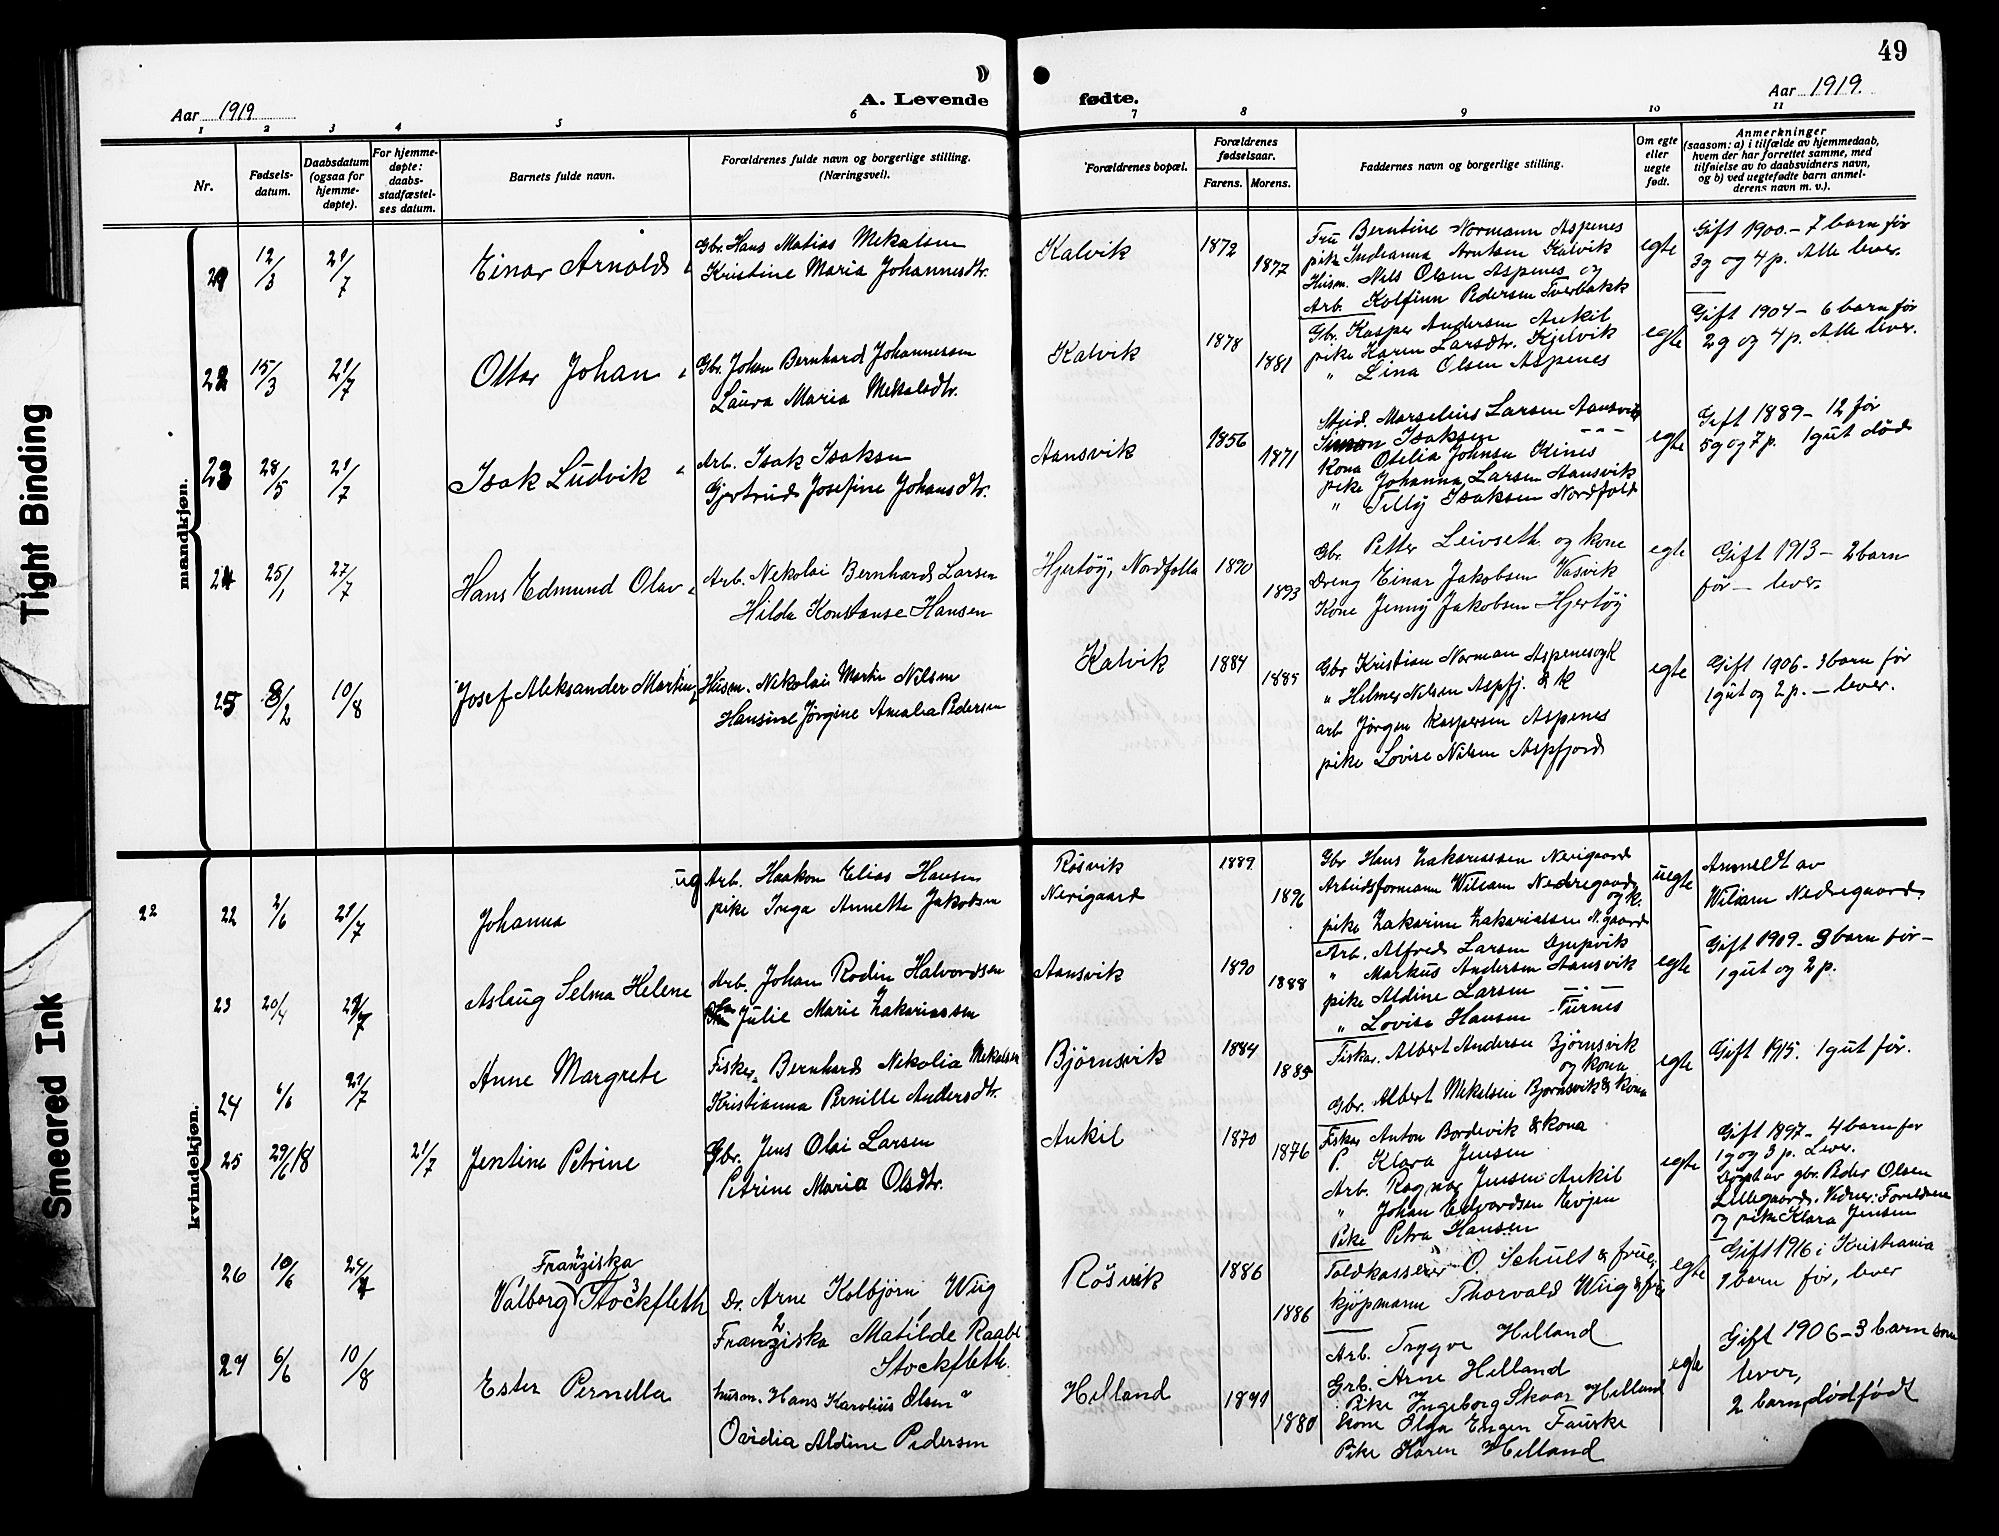 49
Aar 1919
A. Levende
fødte.
Aar 1919.
1 2 3 4 5 6 7 8 9 10 11
Nr.
Fødsels-
datum.
Daabsdatum
(ogsaa for
hjemme-
døpte).
For hjemme-
døpte:
daabs-
stadfæstel-
ses datum.
Barnets fulde navn.
Forældrenes fulde navn og borgerlige stilling.
(Næringsvei).
Forældrenes bopæl.
Forældrenes
fødselsaar.
Farens. Morens.
Faddernes navn og borgerlige stilling.
Om egte
eller
uegte
født.
Anmerkninger
(saasom: a) i tilfælde av hjemmedaab,
hvem der har forrettet samme, med
tilføielse av to daabsvidners navn,
og b) ved uegtefødte barn anmel-
derens navn m. v.).
mandkjøn.
21 12/3 21/7
Einar Arnolds
Gbr. Hans Matias Mekalsen
Kristine Maria Johannesdtr.
Kalvik
1872
1877
Fru Berntine Normann Aspenes
pike Indianna Arntsen Kalvik
Husm. Nils Olsen Aspenes og
Arb. Kolfinn Pedersen Tverbakk
egte
Gift 1900 - 7 barn før
3g og 4 p. Alle lever.
22 15/3 21/7
Ottar Johan
Gbr. Johan Bernhard Johannessen
Laura Maria Mekalsdtr.
Kalvik
1878
1881
Gbr. Kasper Andersen Ankil
pike Karen Larsdtr. Kjelvik
" Lina Olsen Aspenes
egte
Gift 1904 - 6 barn før
2g og 4 p. Alle lever.
23 28/5 21/7
Isak Ludvik
Arb. Isak Isaksen
Gjertruds Josefine Johansdtr.
Aansvik
1856
1871
Marselius Larsen Aansvik
Simon Isaksen - - -
Kona Otelia Johnsen
pike Johanna Larsen Aansvik
" Tilly Isaksen Nordfold
egte
Gift 1889 - 12 før
5g og 7 p. 1 gut død
24 25/1 27/7
Hans Edmund Olav
Arb. Nekolai Bernhards Larsen
Hilda Konstanse Hansen
Hjertøy, Nordfolla
1890
1893
Gbr. Petter Leivseth og kone
Dreng Einar Jakobsen Vasvik
Kone Jenny Jakobsen Hjertøy
egte
Gift 1913 - 2 barn
før - lever.
25 8/2 10/8
Josef Aleksander Martin
Husm. Nikolai Martin Nilsen
Hansine Jørgine Amalia Pedersen
Kalvik
1884
1885
Gbr Kristian Norman Aspenes og K
" Helmer Nilsen Aspfj. & K
arb Jørgen Kaspersen Aspenes
pike Lovise Nilsen Aspfjord
egte
Gift 1906 - 3 barn før
1 gut og 2 p. - lever.
kvindekjøn.
22 22 2/6 21/7
Johanna
ug Arb. Haakon Elias Hansen
pike Inga Annette Jakobsen
Røsvik
Nerigaard
1889
1896
Gbr Hans Zakariassen Nerigaard
Arbeidsformann Wiliam Nedregaard
og k.
pike Zakarine Zakariassen N.gaard
uegte
Anmeldt av
Wiliam Nedregaard.
23 20/4 21/7
Aslaug Selma Helene
Arb. Johan Rodin Halvordsen
Julie Marie Zakariassen
Aansvik
1890
1888
Arb. Alfred Larsen Djupvik
" Markus Andersen Aansvik
pike Aldine Larsen - - -
" Lovise Hansen Furnes
egte
Gift 1909 - 3 barn før -
1 gut og 2 p.
24 6/6 21/7
Anne Margrete
Fisker. Bernhards Nekolia Mekalsen
Kristianna Pernille Andersdtr.
Bjørnsvik
1884
1885
Fisker. Albert Andersen Bjørnsvik
og kona
Gbr. Albert Mekelsen Bjørnsvik & Kona
egte
Gift 1915. 1 gut før.
25 29/6 18 21/7
Jentine Petrine
Gbr. Jens Olai Larsen
Petrine Maria Olsdtr.
Ankil
1870
1876
Fisker Anton Bordevik & kona
P. Klara Jensen
Arb. Ragnar Jensen Ankil
" Johan Edvardsen Evjen
Pike Petra Hansen
egte
Gift 1897 - 4 barn før
1g og 3 p. Lever.
Døpt av gbr. Peder Olsen
Lillegaard. Vidner: Foreldrene
og pike Klara Jensen
26 10/6 27/7
Franziska
Valborg Stockfleth
Dr. Arne Kolbjørn Wiig
Franziska Matilde Raabe
Stockfleth.
Røsvik
1886
1886
Toldkasserer O. Schult & frue,
kjøpmann Thorvald Wiig & frue
egte
Gift 1916 i Kristiania
1 barn før, lever
27 6/6 10/8
Ester Pernella
husm. Hans Karolius Olsen
Ovidia Aldine Pedersen
Helland
1880
Arb. Trygve Helland
Grb. Arne Helland
Pike Ingeborg Skaar Helland
Kone Olga Engen Fauske
Pike Karen Helland
egte
Gift 1906 - 3 barn som
lever,
2 barn dødfødt
Tight Binding
Smeared Ink